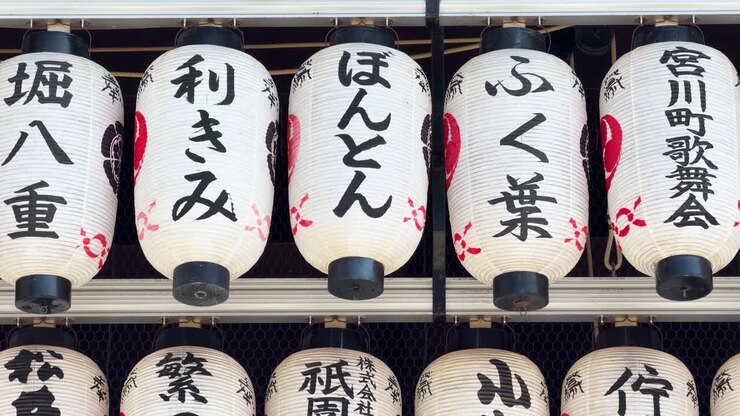 堀八重
利きみ
ぼんとん
ふく葉
宮川町歌舞会
繁
株式会社
祇園
小
佇